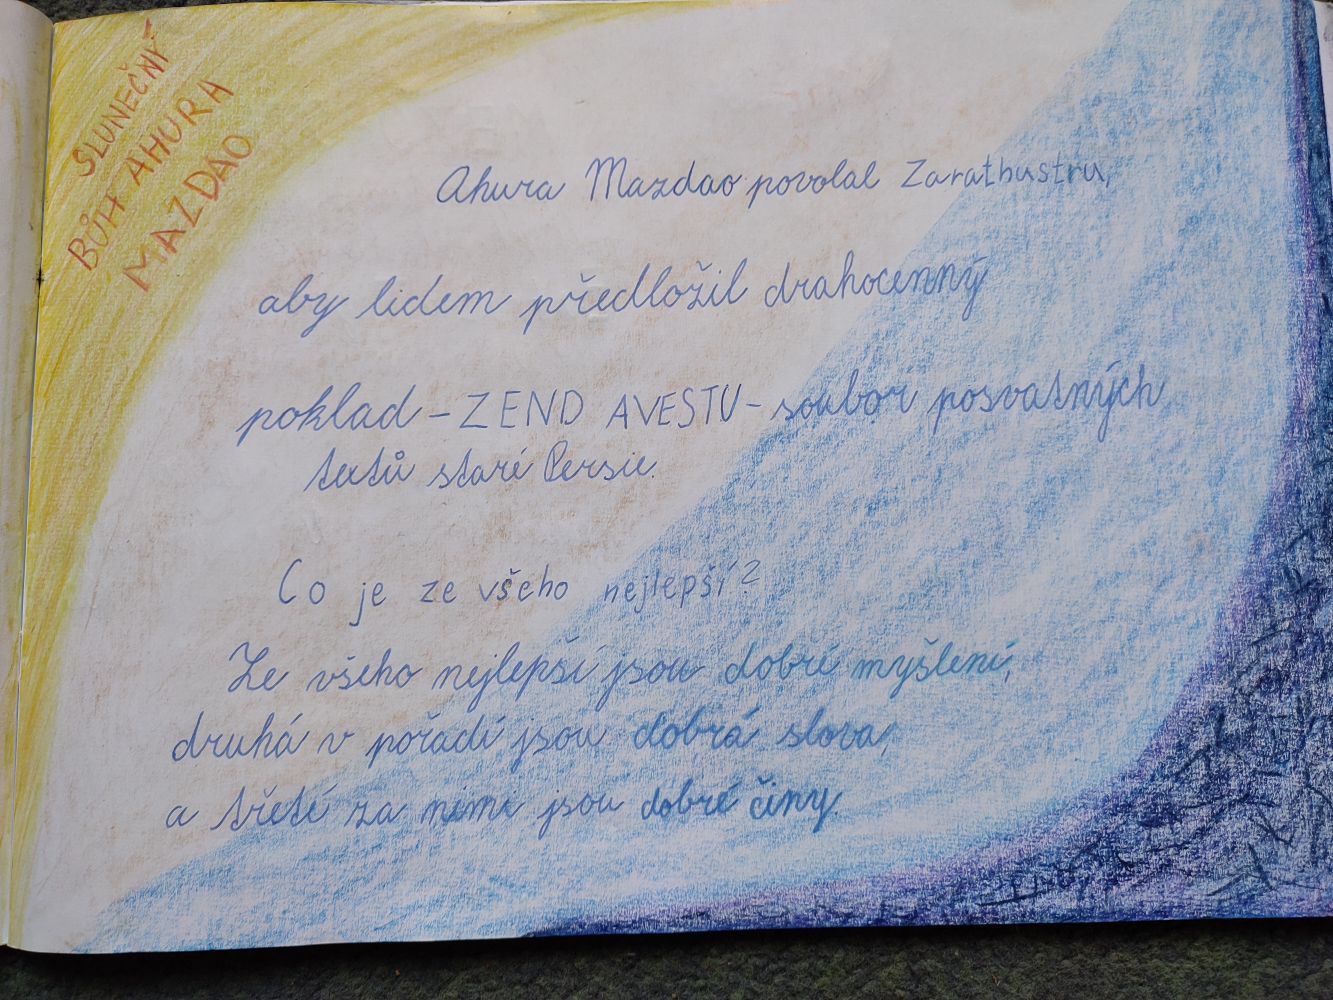 SLUNEČNÝ
BŮH AHURA
MAZDAO
Ahura Mazdao povolal Zarathustru,
aby lidem předložil drahocenný
poklad – ZEND AVESTU – soubor posvatných
textů staré Persie.
Co je ze všeho nejlepší?
Ze všeho nejlepší jsou dobré myšlení,
druhá v pořadí jsou dobrá slova,
a třetí za nimi jsou dobré činy.